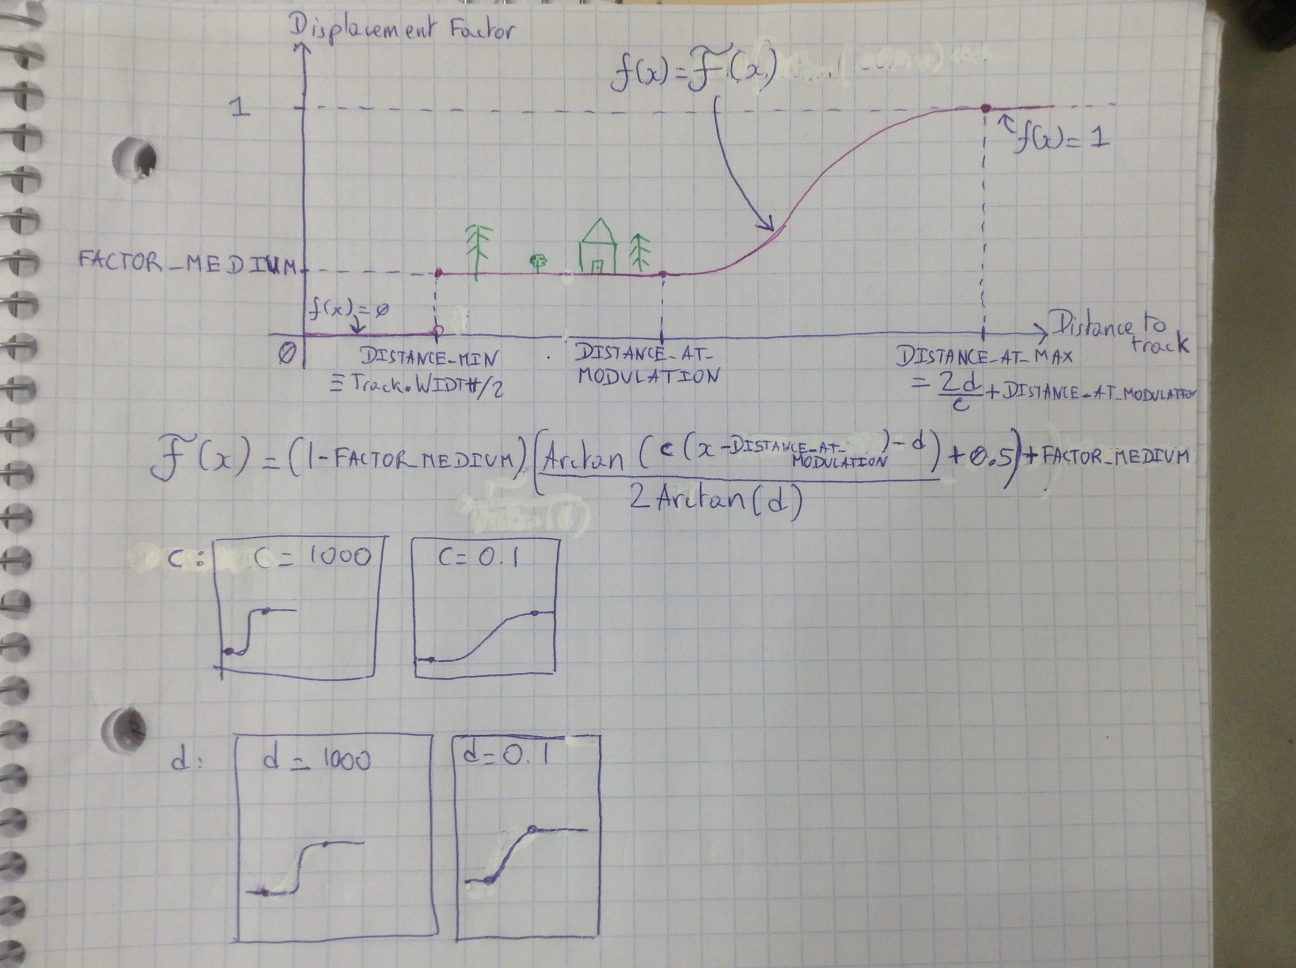 Displacement Factor
f(x) = F̃(x)
1
f(x) = 1
FACTOR_MEDIUM
f(x) = 0
0
Distance to
track
DISTANCE_MIN
≡ Track.WIDTH/2
DISTANCE_AT_
MODULATION
DISTANCE_AT_MAX
= 2d/c + DISTANCE_AT_MODULATION
F̃(x) = (1-FACTOR_MEDIUM) (Arctan (c(x-DISTANCE_AT_MODULATION)-d) / 2 Arctan(d) + 0.5) + FACTOR_MEDIUM
c:
C = 1000
C = 0.1
d:
d = 1000
d = 0.1